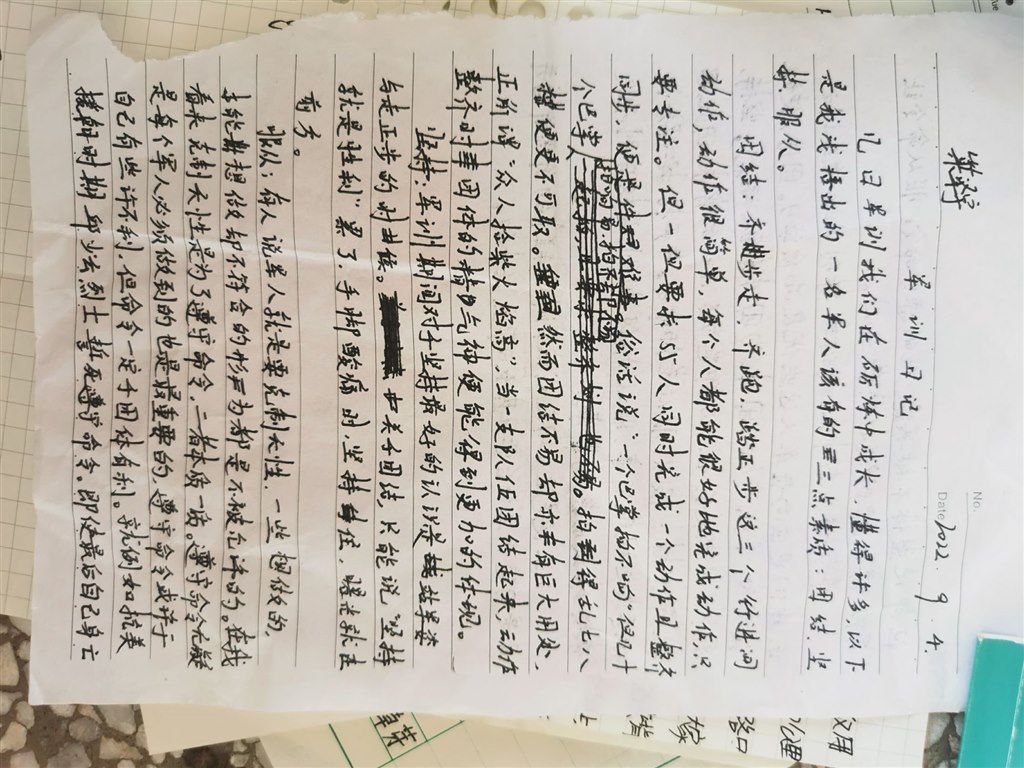 No.
Date 2022.9.4.
军训日记
几日军训我们在砺炼中成长,懂得许多,以下
是我总结出的一名军人该有的三点素质:团结,坚
持,服从。
团结:齐步走,齐跑,踏正步这三个行进间
动作,动作很简单,每个人都能很好地完成动作,只
要专注。但一但要求55人同时完成一个动作且整齐
同步,便是件难事。俗话说"一个巴掌拍不响"但几十
个巴掌一起拍得乱七八
糟便更不可取。然而团结不易却亦有巨大用处,
正所谓"众人捡柴火焰高",当一支队伍团结起来,动作
整齐时其团体的精气神便能得到更加的体现。
坚持:军训期间对于坚持最好的认识是站军姿
与走正步的时候。关于团结,只能说"坚持
就是胜利"累了,手脚酸痛时,坚持住,曙光就在
前方。
服从:有人说军人就是要克制天性,一些想做的,
都是不被允许的。在我
看来克制天性是为了遵守命令,二者本质一齐。遵守命令无疑
是每个军人必须做到的也是最重要的,遵守命令或许于
自己有些许不利,但命令一定于团体有利。就例如抗美
援朝时期,多少烈士誓死遵守命令。即使最后自己身亡